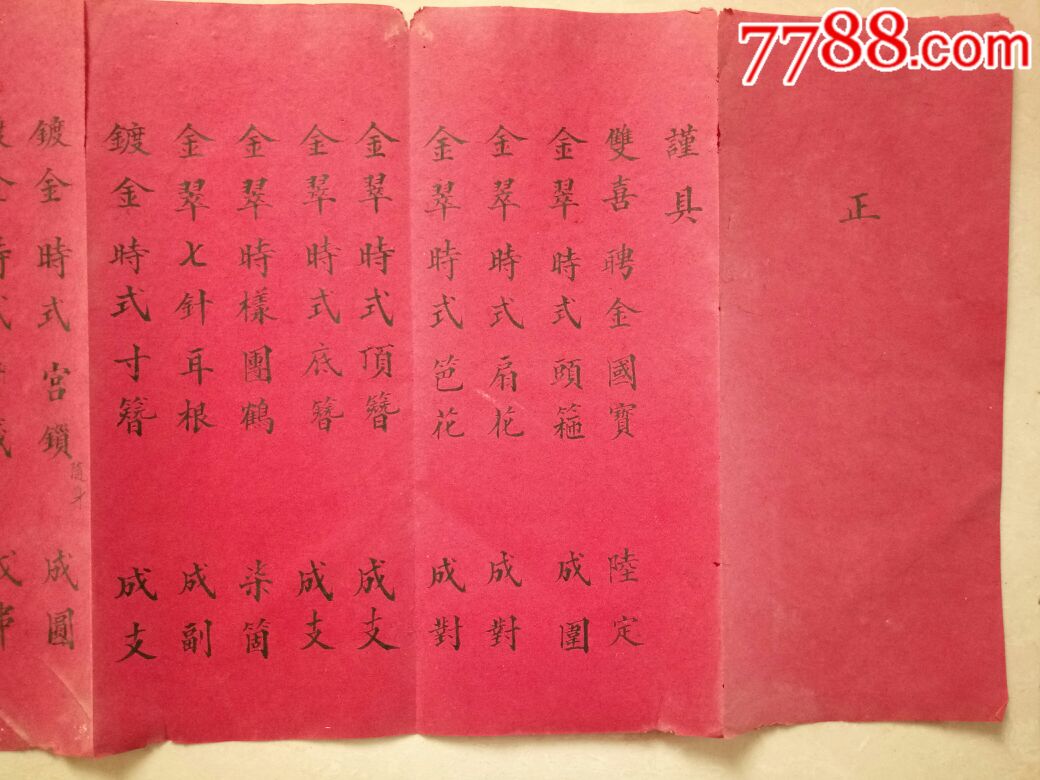 7788.com
正
謹具
雙喜聘金國寶 陸定
金翠時式頭箍 成圍
金翠時式扇花 成對
金翠時式笆花 成對
金翠時式頂簪 成支
金翠時式底簪 成支
金翠時樣團鶴 柒箇
金翠七針耳根 成副
鍍金時式寸簪 成支
鍍金時式宮鎖 隨身 成圓